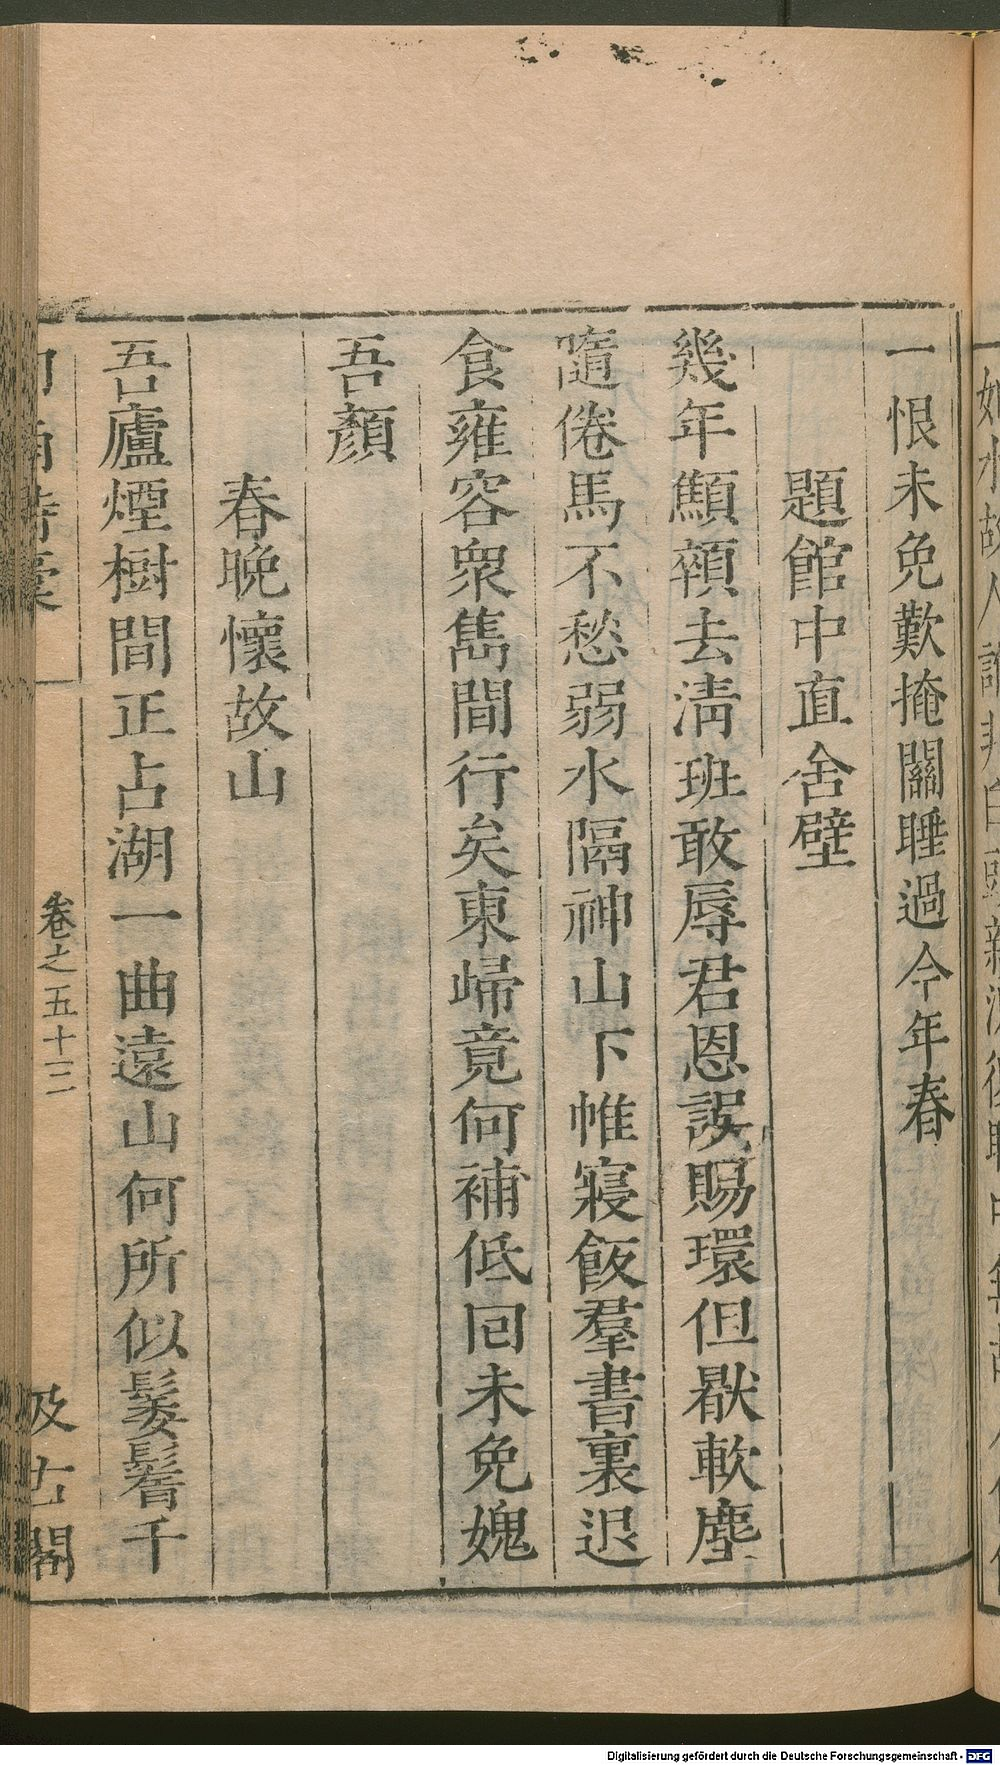 一恨未免歎掩關睡過今年春
題館中直舍壁
幾年顦顇去淸班敢辱君恩誤賜環但厭軟塵
隨倦馬不愁弱水隔神山下帷寢飯羣書裏退
食雍容衆雋間行矣東歸竟何補低回未免媿
吾顏
春晚懷故山
吾廬煙樹間正占湖一曲遠山何所似鬖髿千
卷之五十三
汲古閣
Digitalisierung gefördert durch die Deutsche Forschungsgemeinschaft - DFG